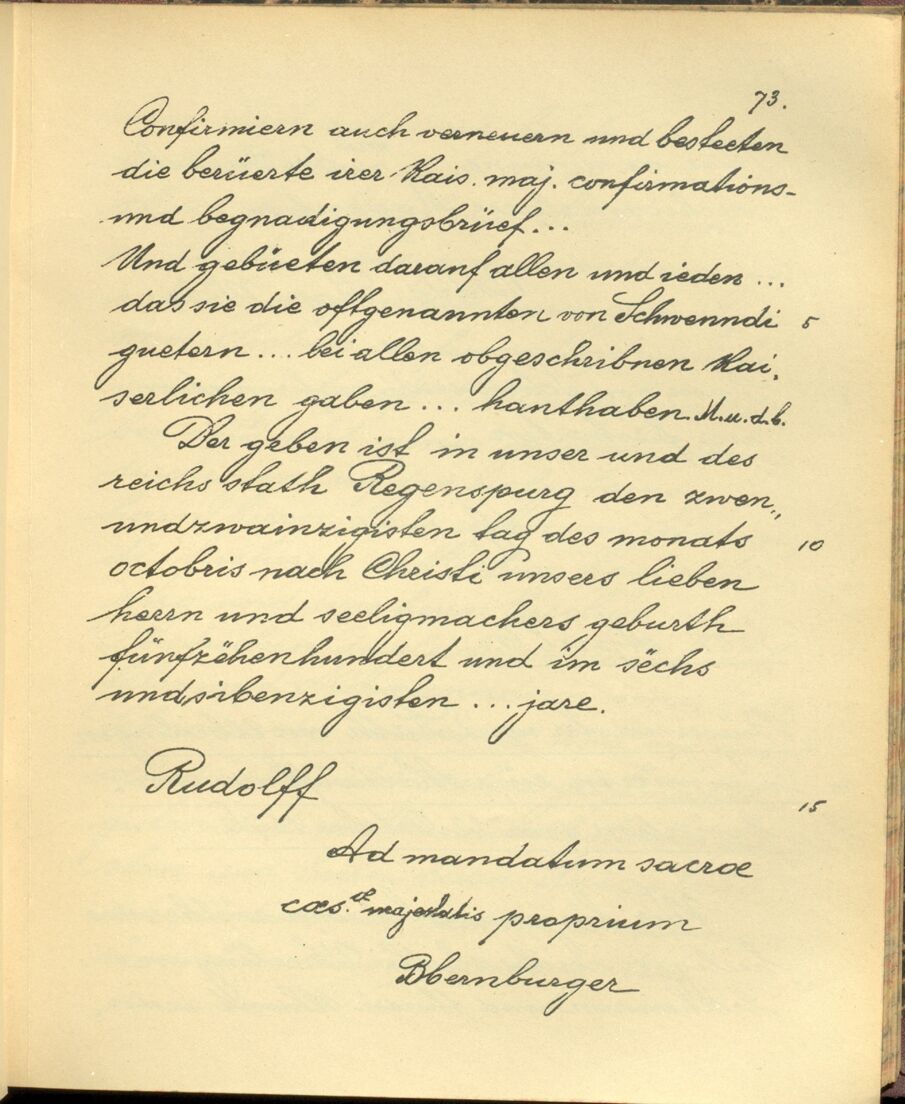 73.
Confirmiern auch verneuern und besteeten
die berüerte irer Kais. maj. confirmations-
und begnadigungsbrüef...
Und gebüeten darauf allen und ieden ...
das sie die offtgenannten von Schwenndi 5
guetern ... bei allen obgeschribnen Kai,
serlichen gaben ... hanthaben. M.u.d.b.
Der geben ist in unser und des
reichs stath Regenspurg den zwen,,
undzwainzigisten tag des monats 10
octobris nach Christi unsers lieben
herrn und seeligmachers geburth
fünfzëhenhundert und im sëchs
undsibenzigisten ... jare.
Rudolff 15
Ad mandatum sacrae
caes.ae majestatis proprium